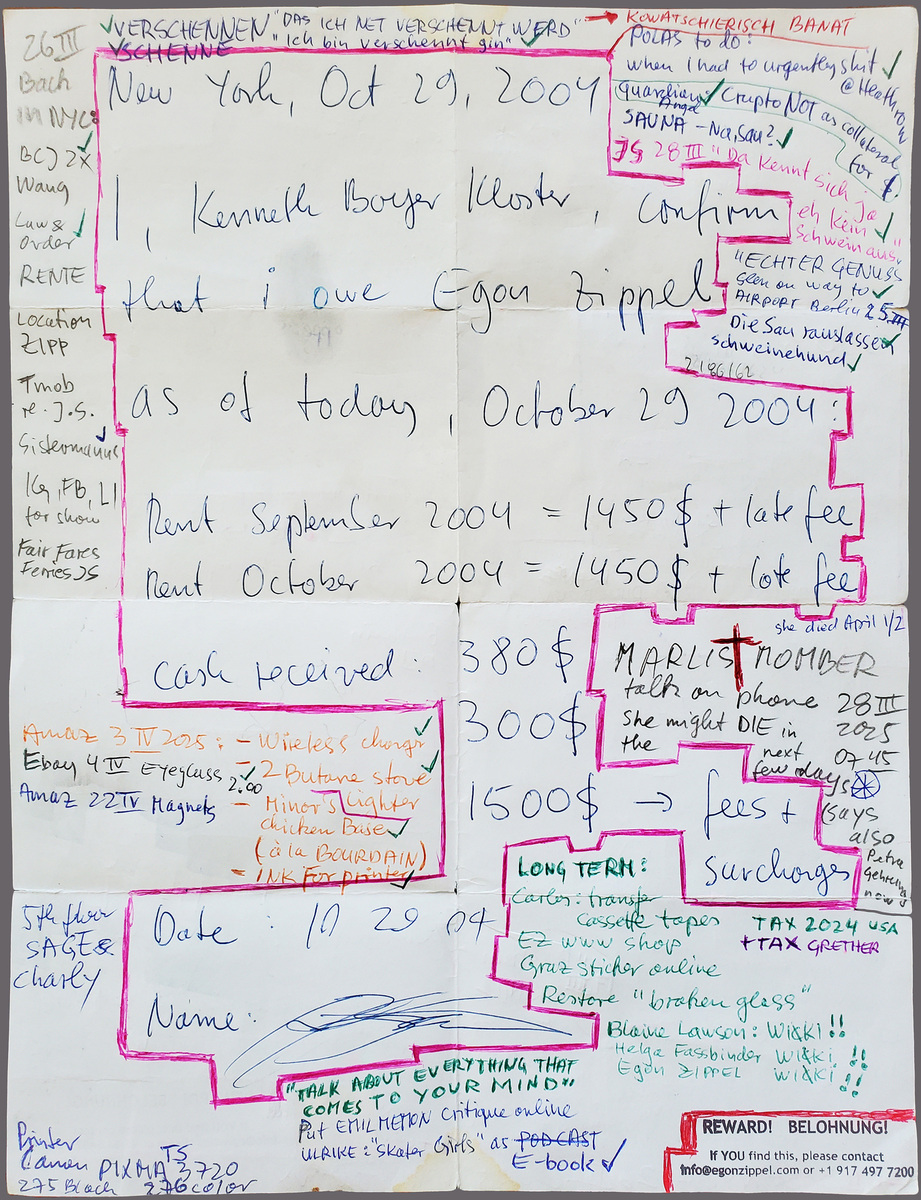 26 III
Bach
in NYC:
BCJ 2X
Wang
Law &
Order
RENTE
Location
ZIPP
Tmob
re. J.S.
Sistermanns
IG, FB, LI
for show
Fair Fares
Ferries JS
VERSCHENNEN "DAS ICH NET VERSCHENNT WERD"
VSCHENNE "Ich bin verschennt gin"
KOWATSCHIERISCH BANAT
POLAS to do:
when I had to urgently shit
@Heathrow
Guardian Angel Crypto NOT as collateral
for $
SAUNA - Na, Sau?
JS 28 III "Da kennt sich ja
eh kein
Schwein aus"
"ECHTER GENUSS
seen on way to
AIRPORT Berlin 25 III
Die Sau rauslassen
Schweinehund
2/86/62
New York, Oct 29, 2004
I, Kenneth Boyer Kloster, confirm
that i owe Egon Zippel
as of today, October 29 2004:
Rent September 2004 = 1450$ + late fee
Rent October 2004 = 1450$ + late fee
cash received: 380$
300$
1500$ → fees +
surcharges
she died April 1/2
MARLIS MOMBER
talk on phone 28 III
She might DIE in 2025
the next 07 45
few days
(says
also
Petra
now
Amaz 3 IV 2025: - Wireless charger
Ebay 4 IV Eyeglass 2.00 - 2 Butane stove
Amaz 22 IV Magnets - Minor's Lighter
chicken Base
(à la BOURDAIN)
- INK For printer
5th floor
SAGE &
Charly
Date : 10 29 04
Name:
LONG TERM:
Carlos: transfer
cassette tapes
TAX 2024 USA
+ TAX GRETHER
EZ www shop
Graz sticker online
Restore "broken glass"
Blaine Lawson: Wiki!!
Helga Fassbinder Wiki!!
Egon ZIPPEL Wiki!!
"TALK ABOUT EVERYTHING THAT
COMES TO YOUR MIND"
Put EMIL MEMON Critique online
ULRIKE: "Skater Girls" as PODCAST
E-book
Printer
Canon PIXMA TS 3720
275 Black 276 color
REWARD! BELOHNUNG!
IF YOU find this, please contact
info@egonzippel.com or +1 917 497 7200